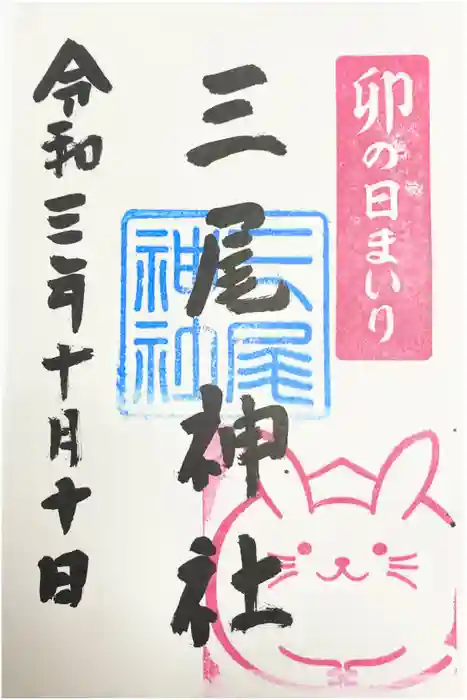 卯の日まいり
三尾神社
三尾神社
令和三年十月十日